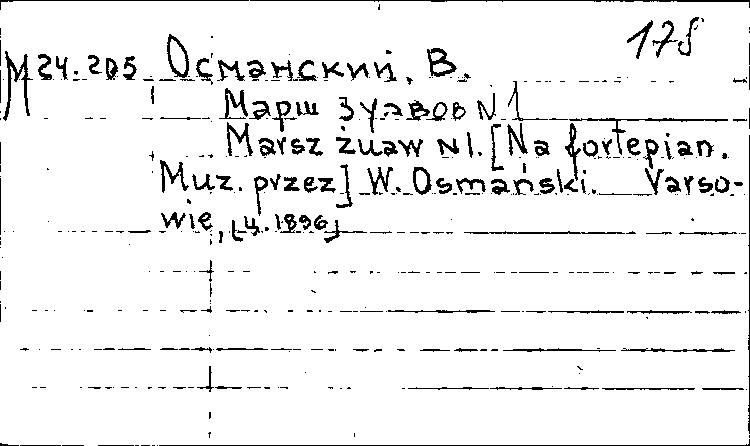 178
М 24.205 Османский, В.
Марш зуавов N 1
Marsz żuaw N 1. [Na fortepian.
Muz. przez] W. Osmański. Varso-
wie, [ц. 1896]